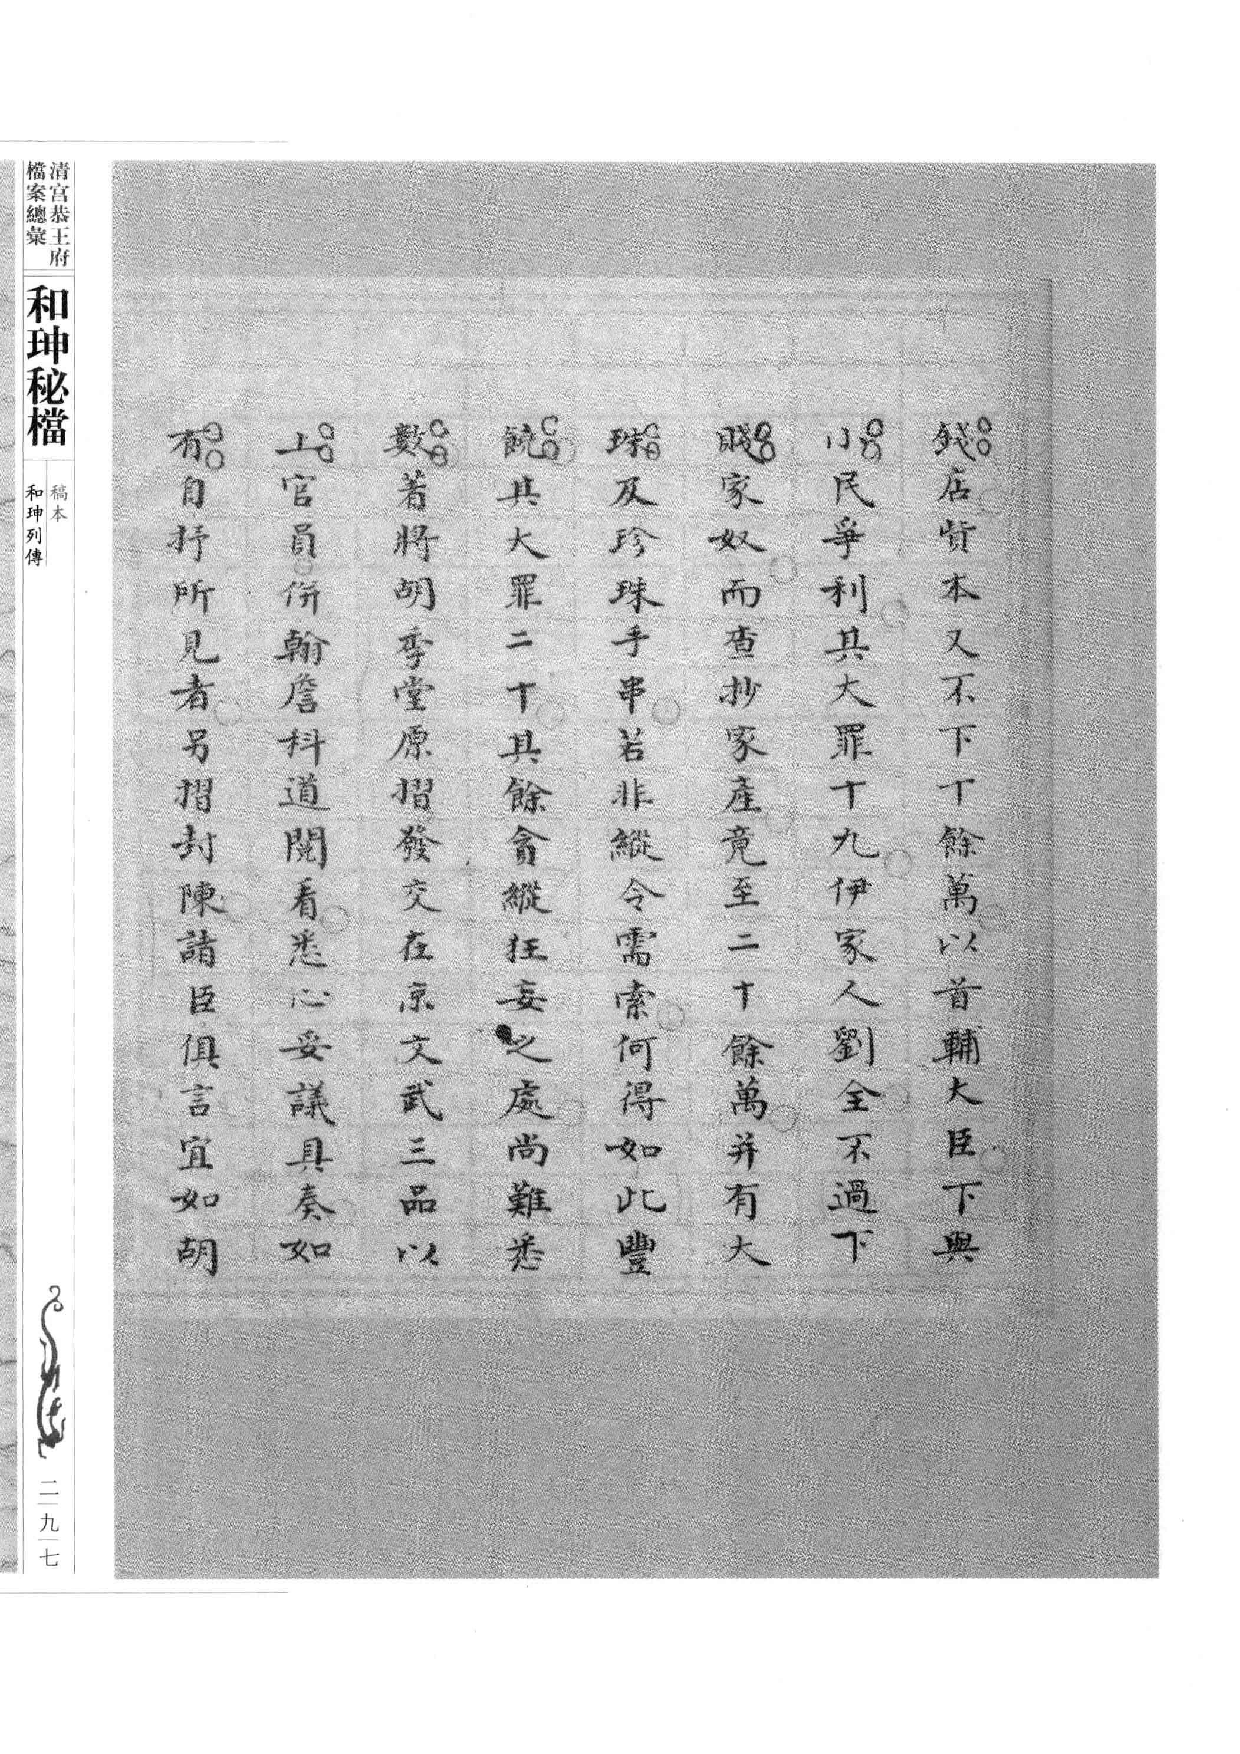 錢店貲本又不下十餘萬以首輔大臣下與
小民爭利其大罪十九伊家人劉全不過下
賤家奴而查抄家產竟至二十餘萬并有大
珠及珍珠手串若非縱令需索何得如此豐
饒其大罪二十其餘貪縱狂妄之處尚難悉
數著將胡季堂原摺發交在京文武三品以
上官員併翰詹科道閱看悉心妥議具奏如
有自抒所見者另摺封陳諸臣俱言宜如胡
清宮恭王府
檔案總彙
和珅秘檔
稿本
和珅列傳
二九七